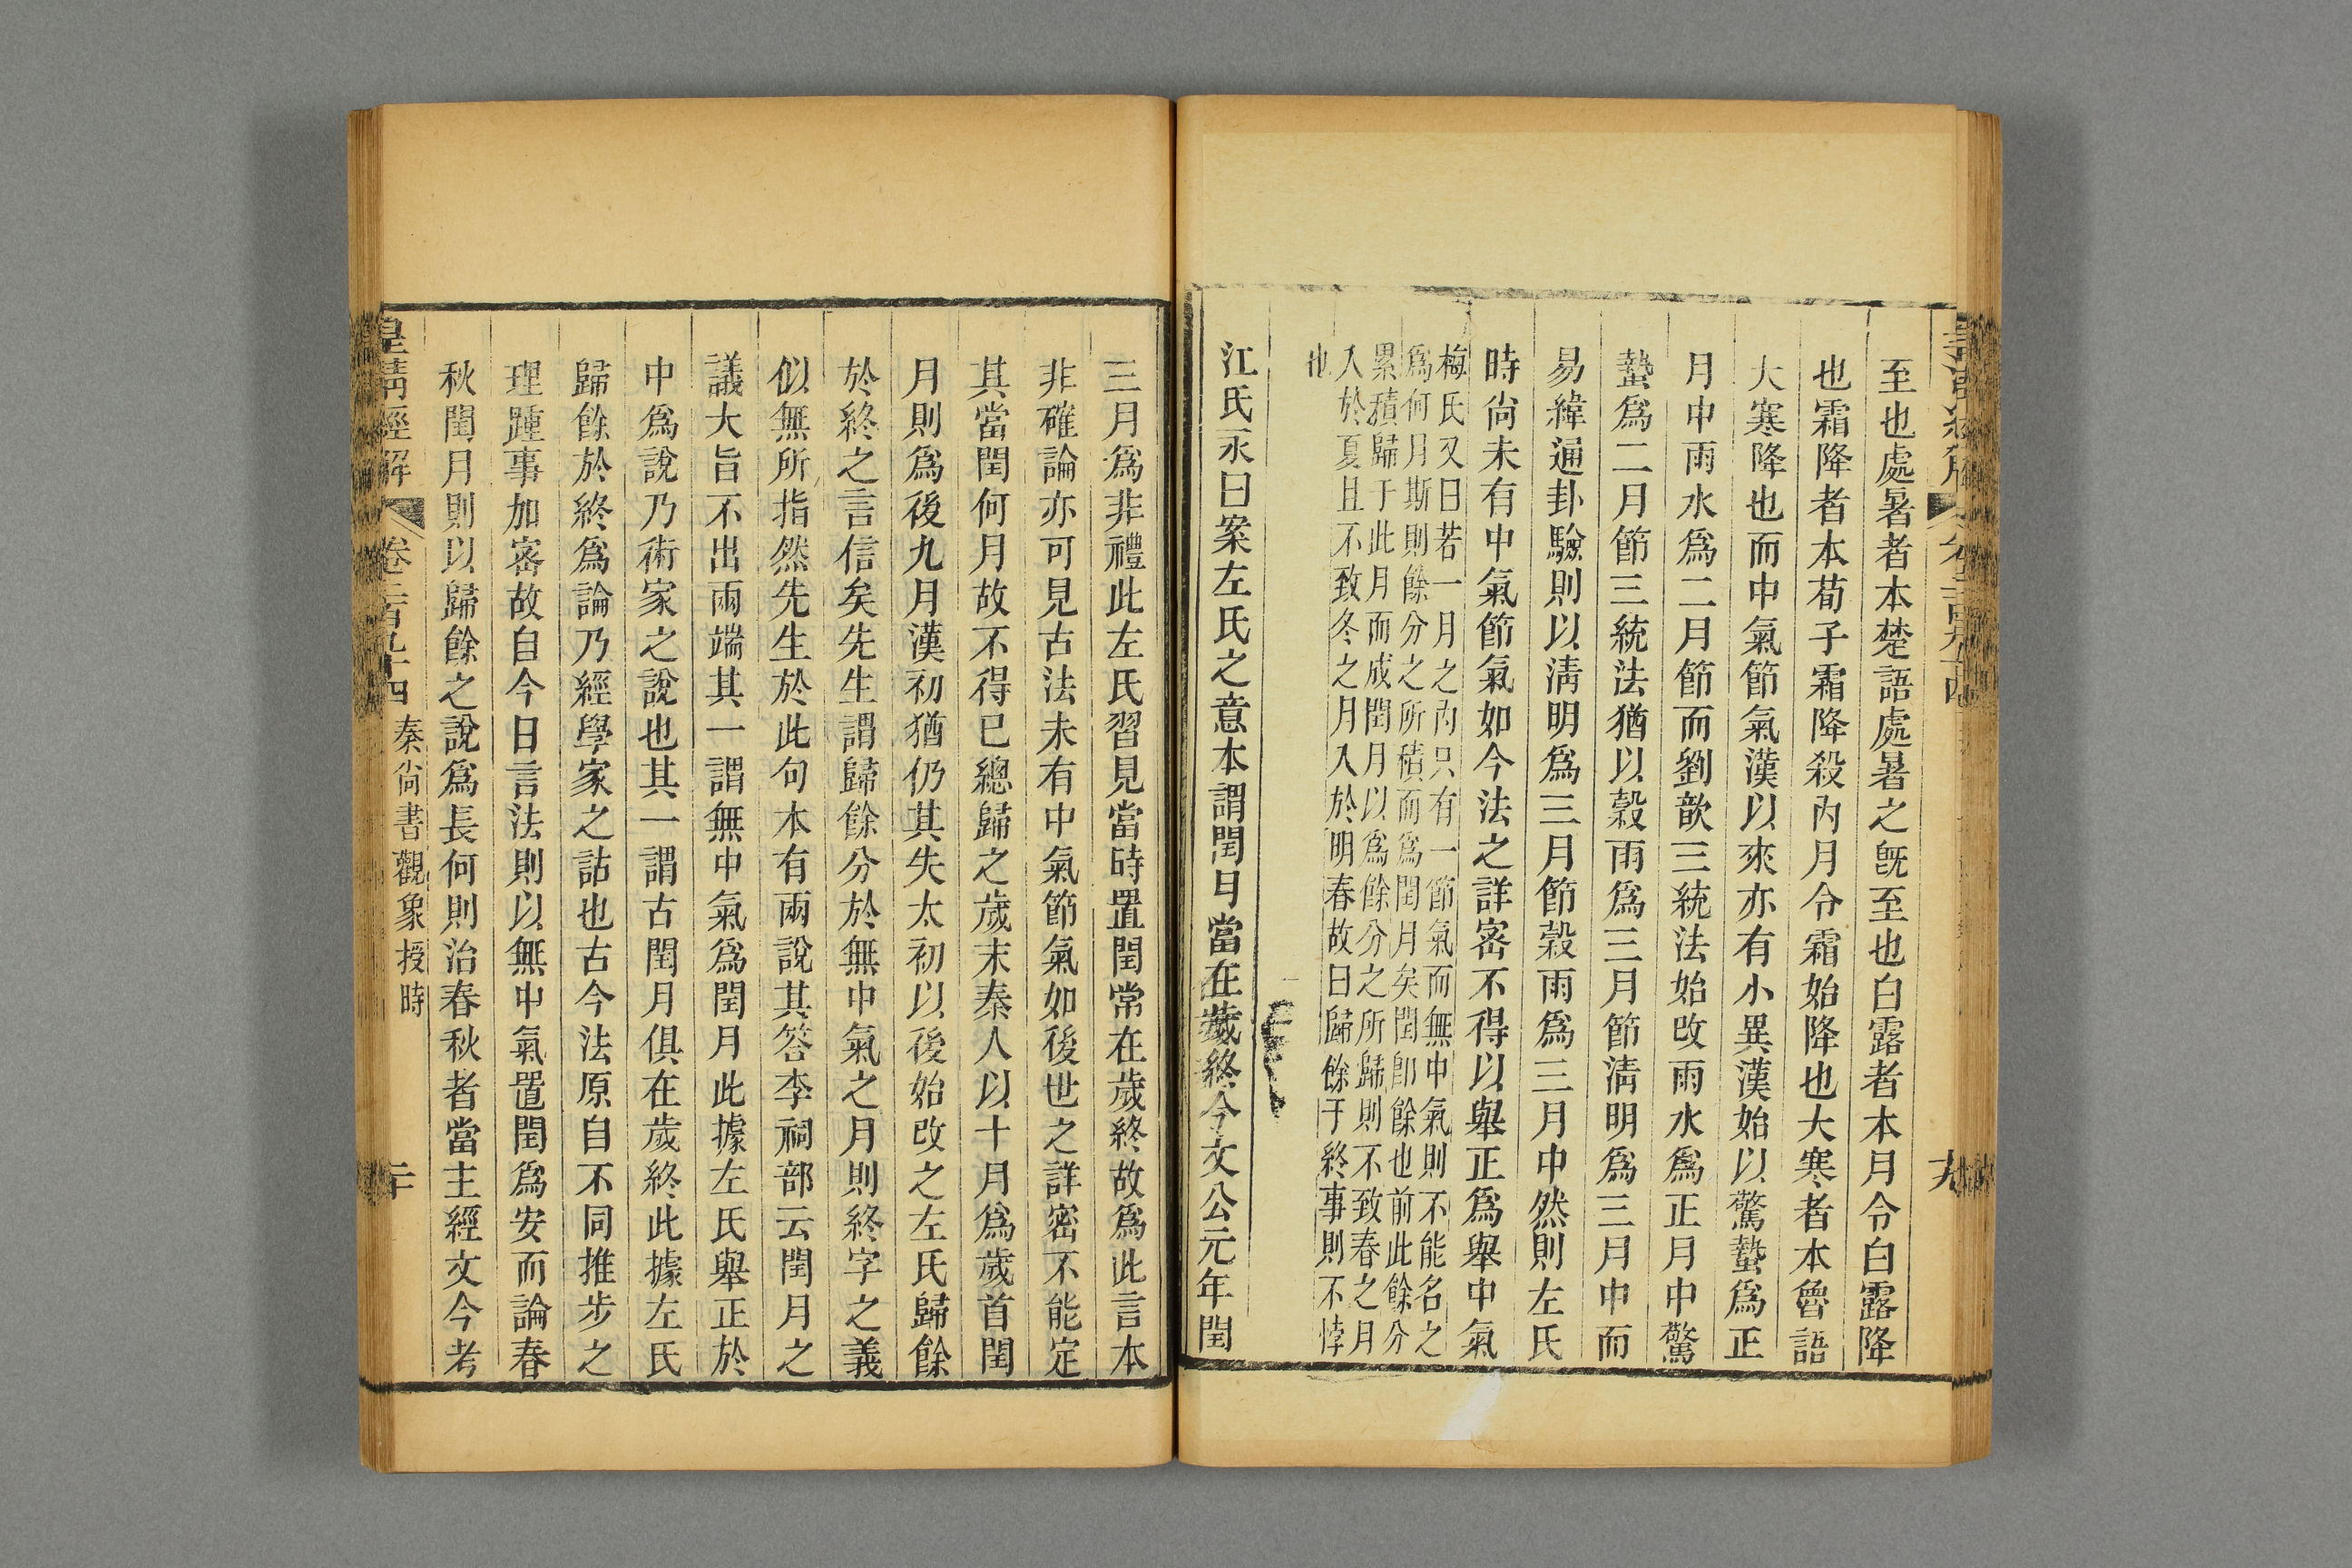 至也處暑者本楚語處暑之旣至也白露者本月令白露降
也霜降者本荀子霜降殺內月令霜始降也大寒者本魯語
大寒降也而中氣節氣漢以來亦有小異漢始以驚蟄爲正
月中雨水爲二月節而劉歆三統法始改雨水爲正月中驚
蟄爲二月節三統法猶以穀雨爲三月節淸明爲三月中而
易緯通卦驗則以淸明爲三月節穀雨爲三月中然則左氏
時尙未有中氣節氣如今法之詳密不得以舉正爲舉中氣
梅氏又曰若一月之內只有一節氣而無中氣則不能名之
爲何月斯則餘分之所積而爲閏月矣閏卽餘也前此餘分
累積歸于此月而成閏月以爲餘分之所歸則不致春之月
入於夏且不致冬之月入於明春故曰歸餘于終事則不悖
也
江氏永曰案左氏之意本謂閏月當在歲終今文公元年閏
三月爲非禮此左氏習見當時置閏常在歲終故爲此言本
非確論亦可見古法未有中氣節氣如後世之詳密不能定
其當閏何月故不得已總歸之歲末秦人以十月爲歲首閏
月則爲後九月漢初猶仍其失太初以後始改之左氏歸餘
於終之言信矣先生謂歸餘分於無中氣之月則終字之義
似無所指然先生於此句本有兩說其答李祠部云閏月之
議大旨不出兩端其一謂無中氣爲閏月此據左氏舉正於
中爲說乃術家之說也其一謂古閏月俱在歲終此據左氏
歸餘於終爲論乃經學家之詁也古今法原自不同推步之
理踵事加密故自今日言法則以無中氣置閏爲安而論春
秋閏月則以歸餘之說爲長何則治春秋者當主經文今考
皇淸經解 卷二百九十四 秦尙書觀象授時 二十